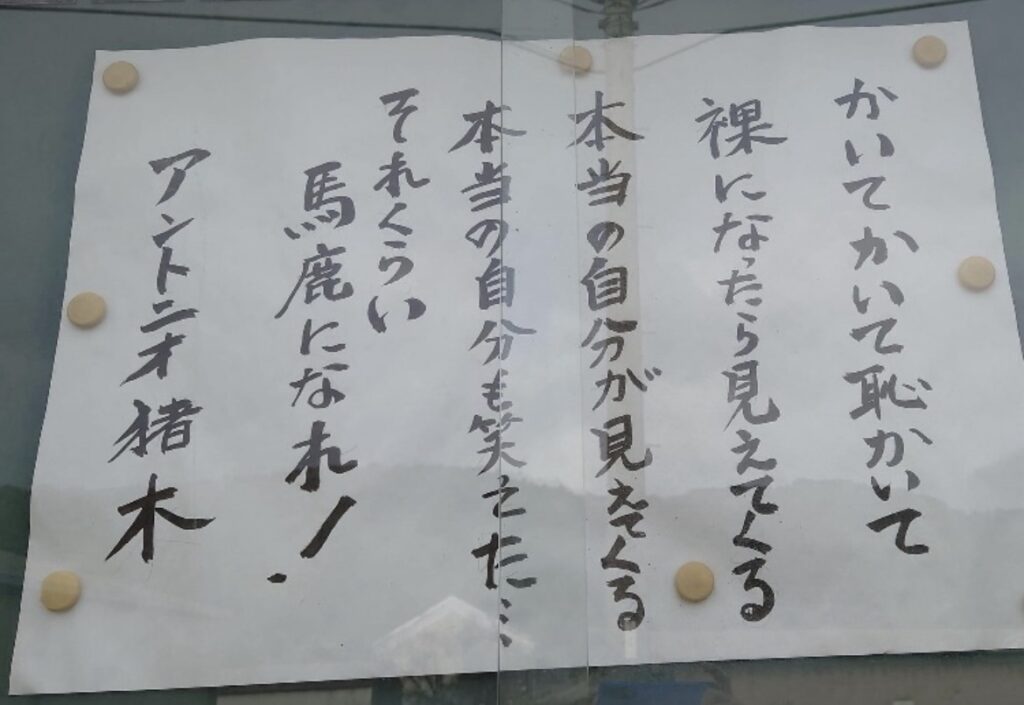 かいてかいて恥かいて
裸になったら見えてくる
本当の自分が見えてくる
本当の自分も笑えた…
それくらい
馬鹿になれ!
アントニオ猪木